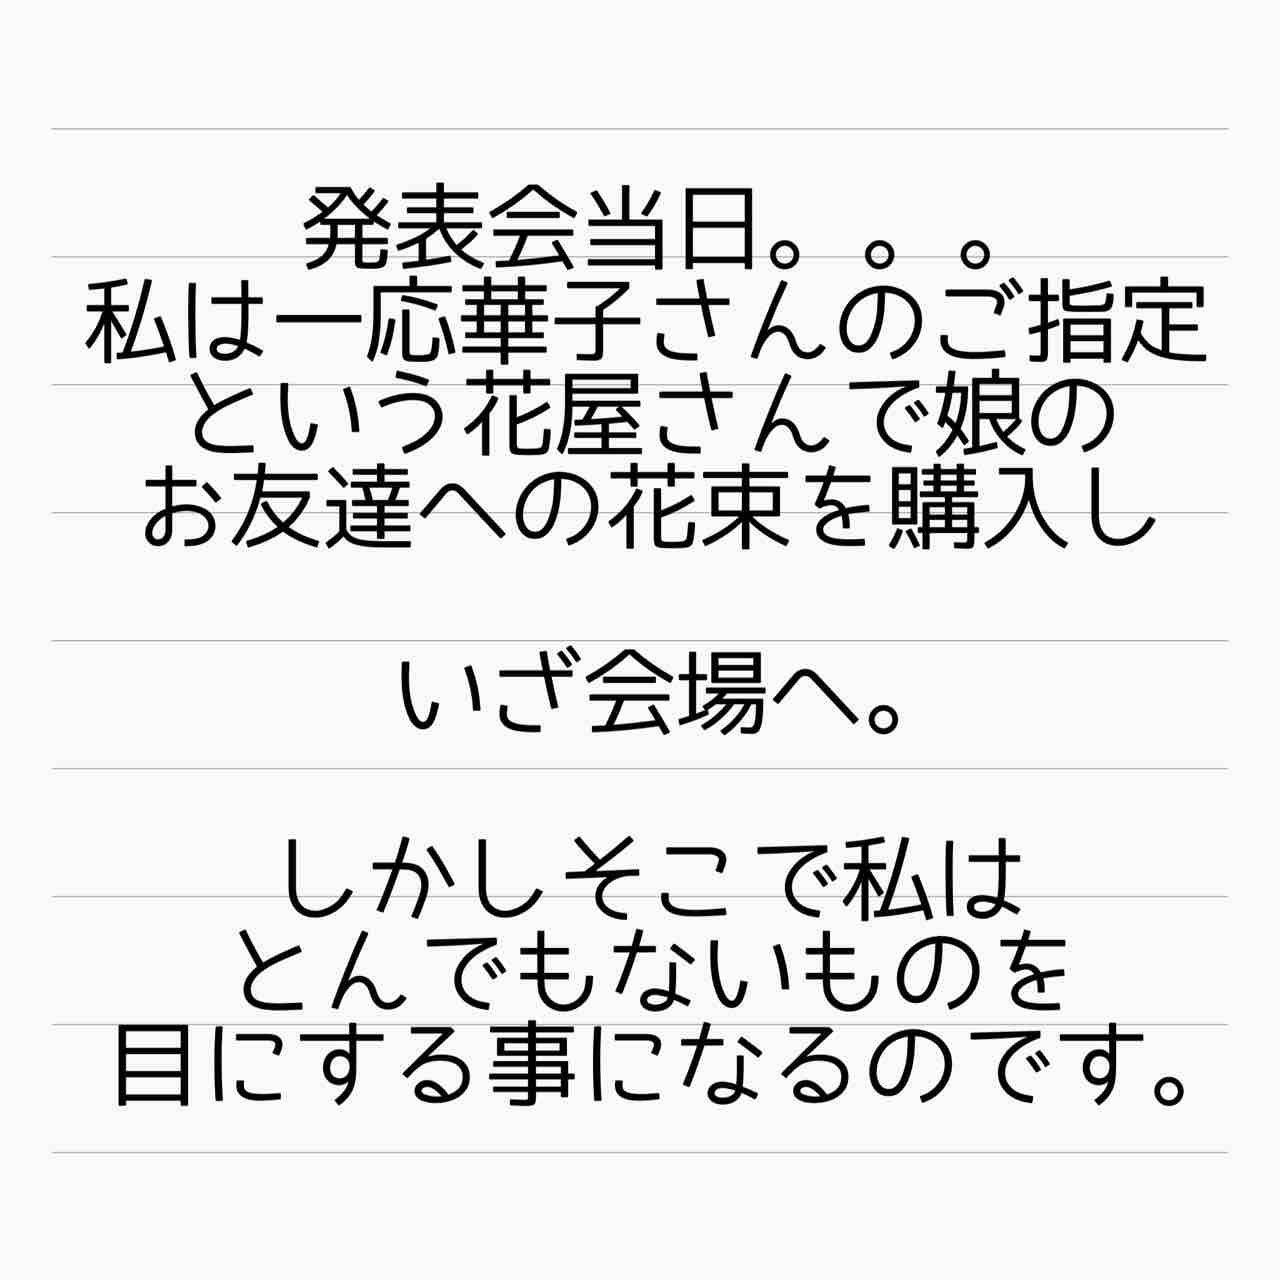 発表会当日。。。
私は一応華子さんのご指定
という花屋さんで娘の
お友達への花束を購入し
いざ会場へ。
しかしそこで私は
とんでもないものを
目にする事になるのです。